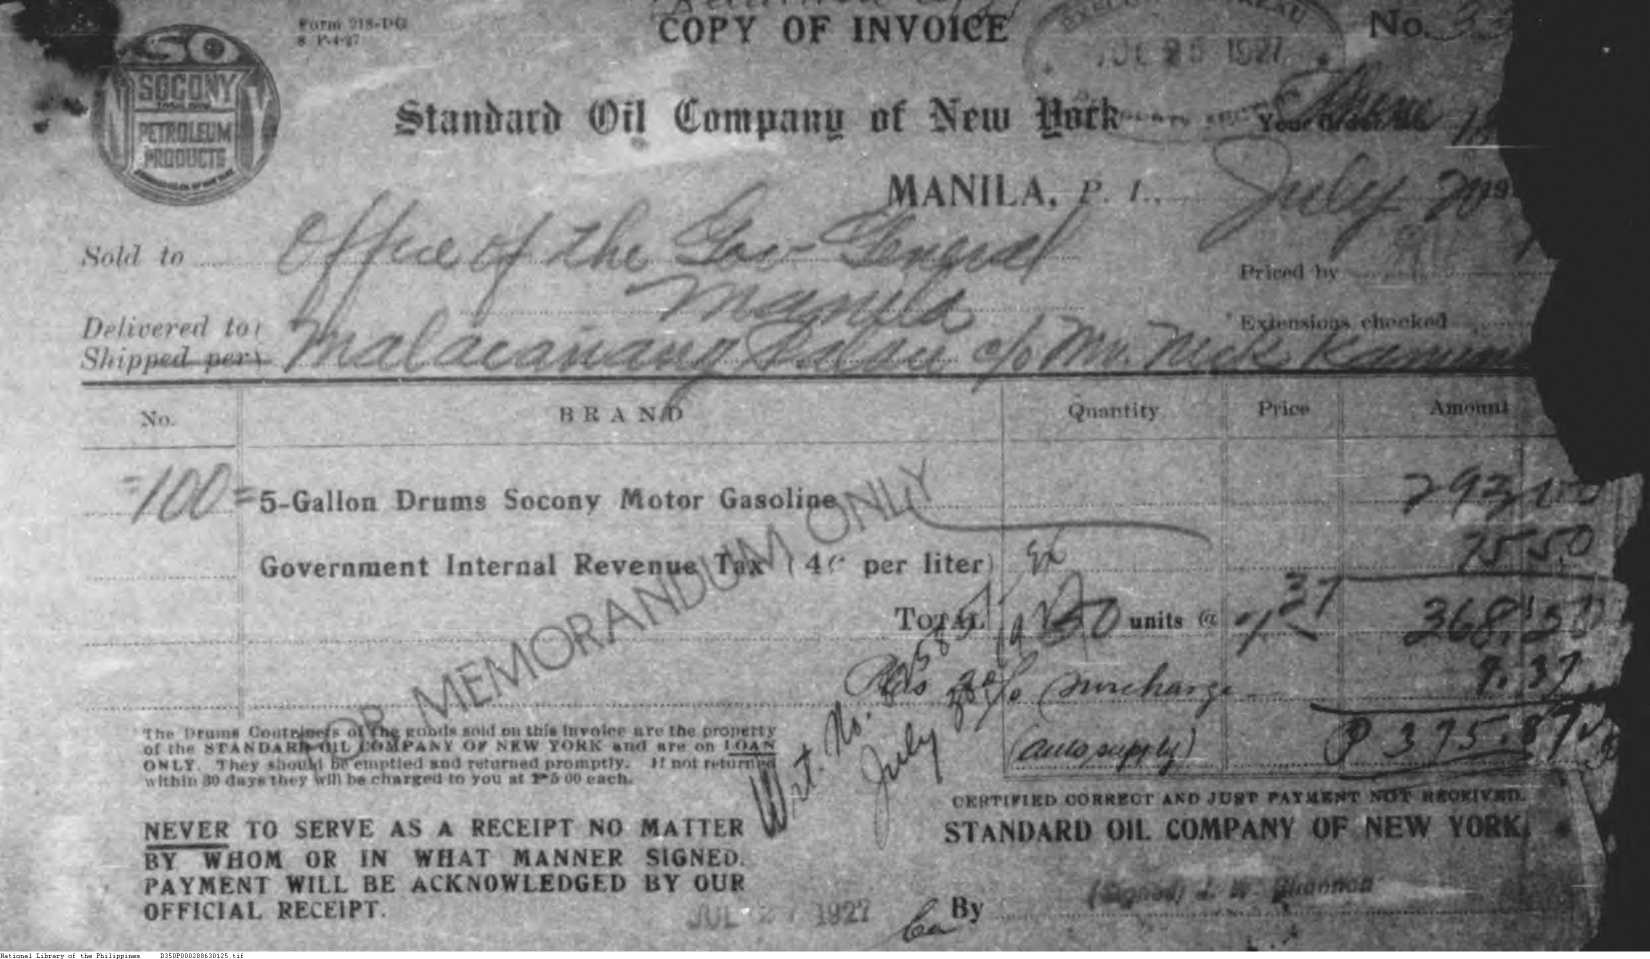 Form 218-DG
COPY OF INVOICE
No. 33
JUL 25 1927
SO
SOCONY
PETROLEUM
PRODUCTS
Standard Oil Company of New York
Phone
MANILA, P. I., July 20 19
Sold to Office of the Gov- General
Manila
Priced by
Delivered to
Extensions checked
Shipped per
Malacañang c/o Mr. Nick
No. BRAND Quantity Price Amount
=100= 5-Gallon Drums Socony Motor Gasoline 293.00
Government Internal Revenue Tax (4¢ per liter) 75.50
TOTAL units @ 368.50
surcharge 7.37
(auto supply) ₱ 375.87
FOR MEMORANDUM ONLY
Wrt. No.
July
The Drums Containers of the goods sold on this invoice are the property
of the STANDARD OIL COMPANY OF NEW YORK and are on LOAN
ONLY. They should be emptied and returned promptly. If not returned
within 30 days they will be charged to you at ₱5 00 each.
CERTIFIED CORRECT AND JUST PAYMENT NOT RECEIVED.
STANDARD OIL COMPANY OF NEW YORK
NEVER TO SERVE AS A RECEIPT NO MATTER
BY WHOM OR IN WHAT MANNER SIGNED.
PAYMENT WILL BE ACKNOWLEDGED BY OUR
OFFICIAL RECEIPT.
JUL 27 1927
By (Signed) J. W. Shannon
National Library of the Philippines